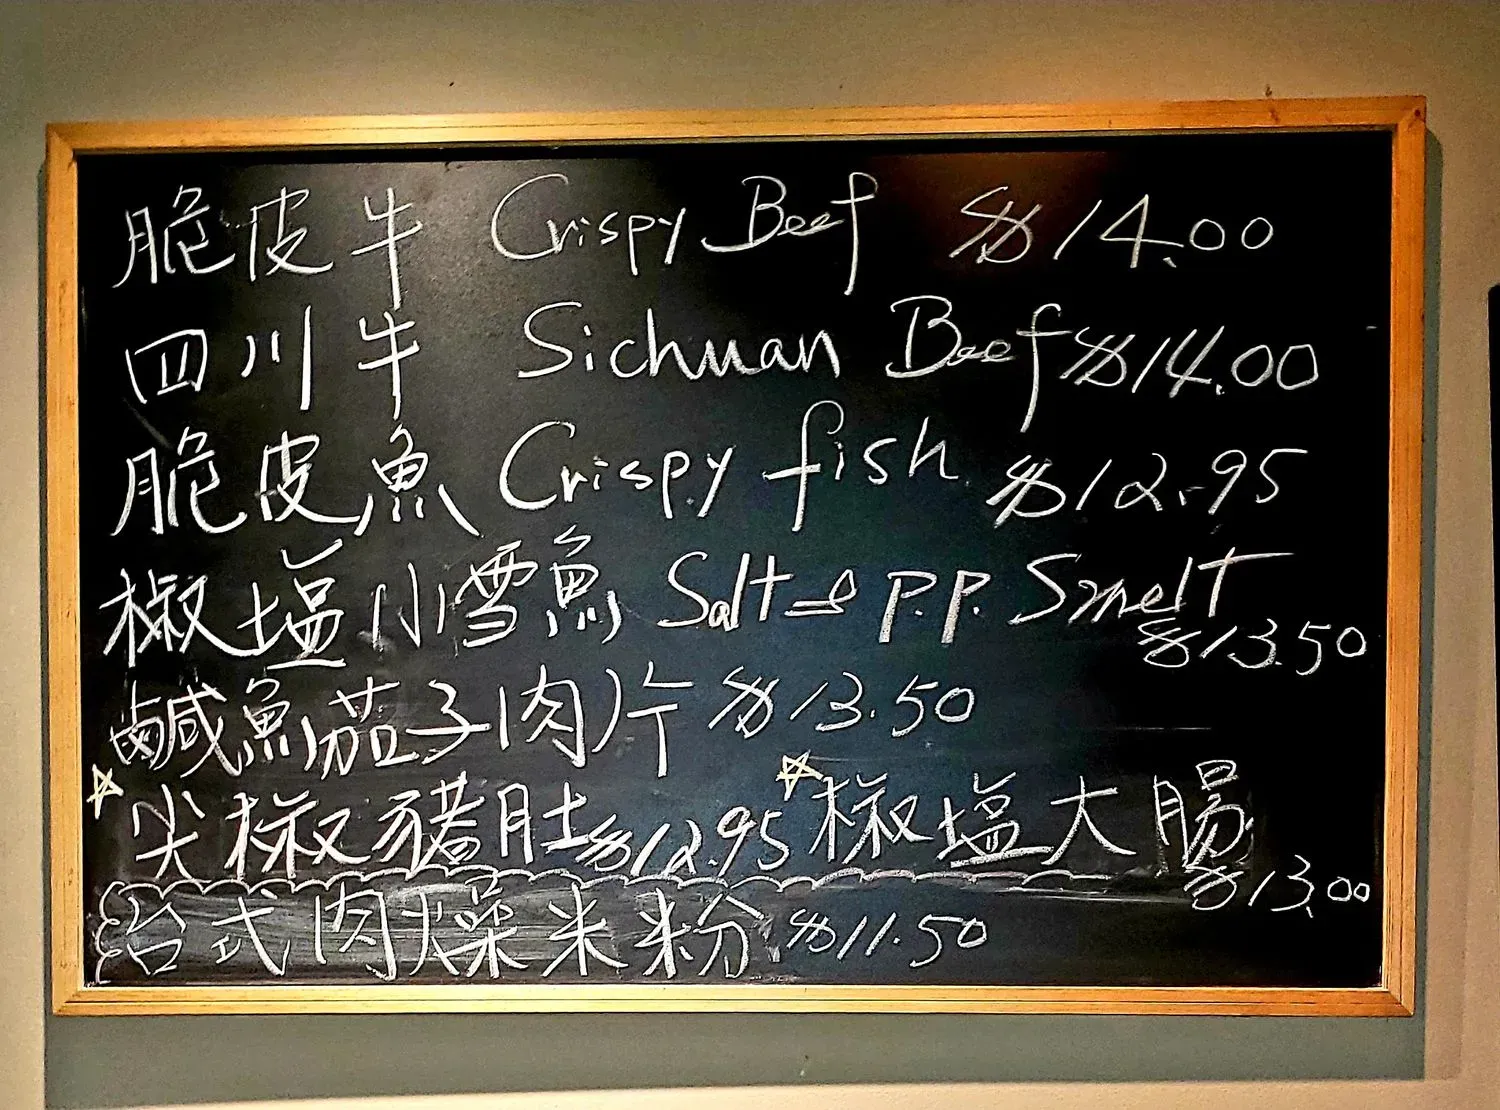 脆皮牛 Crispy Beef $14.00
四川牛 Sichuan Beef $14.00
脆皮魚 Crispy fish $12.95
椒塩小雪魚 Salt & P.P. Smelt $13.50
鹹魚茄子肉片 $13.50
☆尖椒豬肚 $12.95 ☆椒塩大腸 $13.00
台式肉燥米粉 $11.50